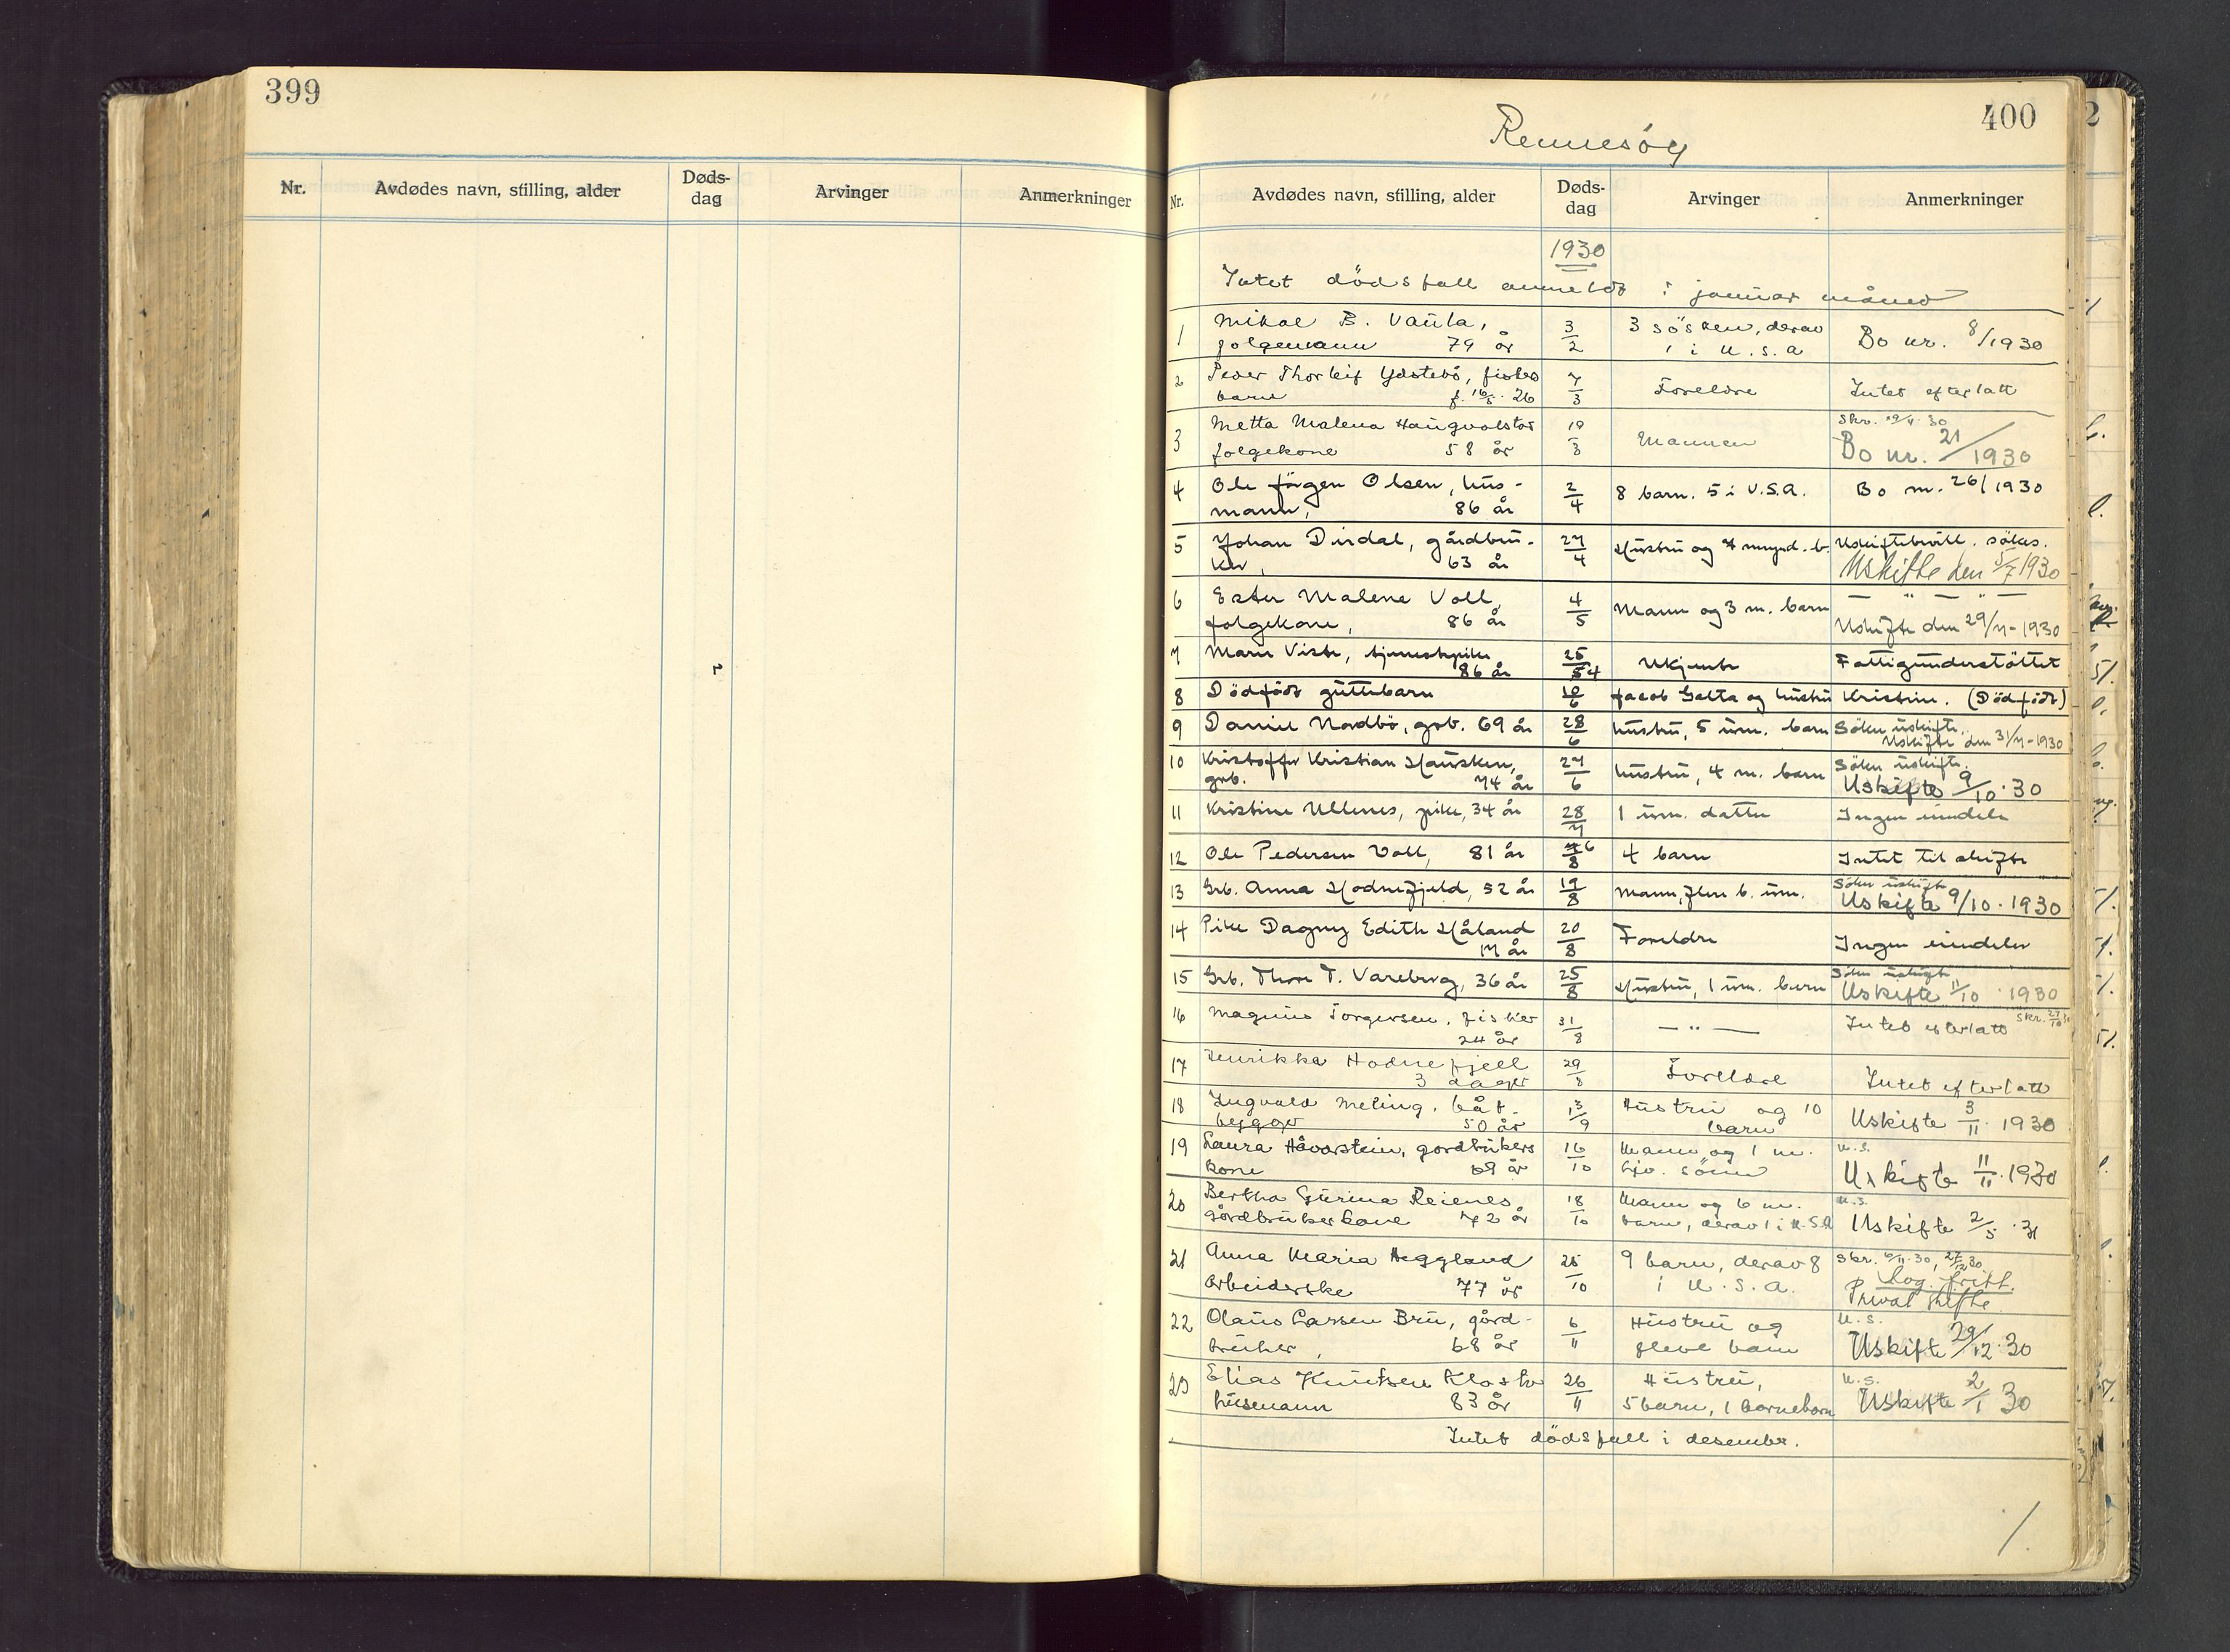 399
Nr. Avdødes navn, stilling, alder Døds-dag Arvinger Anmerkninger
400
Rennesöy
Nr. Avdødes navn, stilling, alder Døds-dag Arvinger Anmerkninger
1930
Intet dödsfall anmeldt i januar måned
1 Mikal B. Vaula, 3/2 3 sösken, derav Bo nr. 8/1930
folgemann 79 år 1 i U.S.A
2 Peder Thorleif Ydstebö, fisker 7/3 Foreldre Intet efterlatt
barn f. 16/5. 26
3 Metta Malena Haugvalstad 19/3 Mannen Skr. 29/4. 30
folgekone 58 år Bo nr. 21/1930
4 Ole Jörgen Olsen, hus- 2/4 8 barn. 5 i U.S.A. Bo nr. 26/1930
mann, 86 år
5 Johan Dirdal, gårdbru- 27/4 Hustru og 4 mynd. b. Uskiftebevill. sökes.
ker, 63 år Uskifte den 5/7 1930
6 Ester Malene Voll, 4/5 Mann og 3 m. barn — " — " —
folgekone, 86 år Uskifte den 29/7-1930
7 Marie Viste, tjenestepike 25/4 Ukjente Fattigunderstöttet
86 år
8 Dödfödt guttebarn 10/6 Jacob Galta og hustru Kristine. (Dödfödt)
9 Daniel Nordbö, grb. 69 år 28/6 hustru, 5 um. barn Söker uskifte.
Uskifte den 31/7-1930
10 Kristoffer Kristian Hausken, 27/6 hustru, 4 m. barn Söker uskifte.
grb. 74 år Uskifte 9/10. 30
11 Kristine Ullenes, pike, 34 år 28/7 1 um. datter Ingen eiendeler
12 Ole Pedersen Voll, 81 år 6/8 4 barn Intet til skifte
13 Grb. Anna Hodnefjeld, 52 år 19/8 Mann, flere b. um. Söker uskifte
Uskifte 9/10. 1930
14 Pike Dagny Edith Håland 20/8 Foreldre Ingen eiendeler
17 år
15 Grb. Thore T. Vareberg, 36 år 25/8 Hustru, 1 um. barn Söker uskifte
Uskifte 11/10. 1930
16 Magnus Torgersen, fisker 31/8 — " — Intet efterlatt skr. 27/10 30
24 år
17 Henrikka Hodnefjell 29/8 Foreldre Intet efterlatt
3 dager
18 Ingvald Meling, båt- 13/9 Hustru og 10 Uskifte 3/11. 1930
bygger 50 år barn
19 Laura Håvarstein, gårdbrukers 16/10 Mann og 1 m. U.S.
kone 69 år sönn Uskifte 11/11. 1930
20 Bertha Gurina Reienes 18/10 Mann og 6 m. U.S.
gårdbrukerkone 72 år barn, derav 1 i U.S.A Uskifte 2/5. 31
21 Anna Maria Heggland 25/10 9 barn, derav 8 Skr. 6/11. 30, 27/12 30
arbeiderske 77 år i U.S.A. Privat skifte
22 Olaus Larsen Bru, gård- 6/11 Hustru og U.S.
bruker, 68 år flere barn Uskifte 29/12. 30
23 Elias Knutsen Kloster 26/11 Hustru, U.S.
husmann 83 år 5 barn, 1 barnebarn Uskifte 2/1 30
Intet dödsfall i desember.